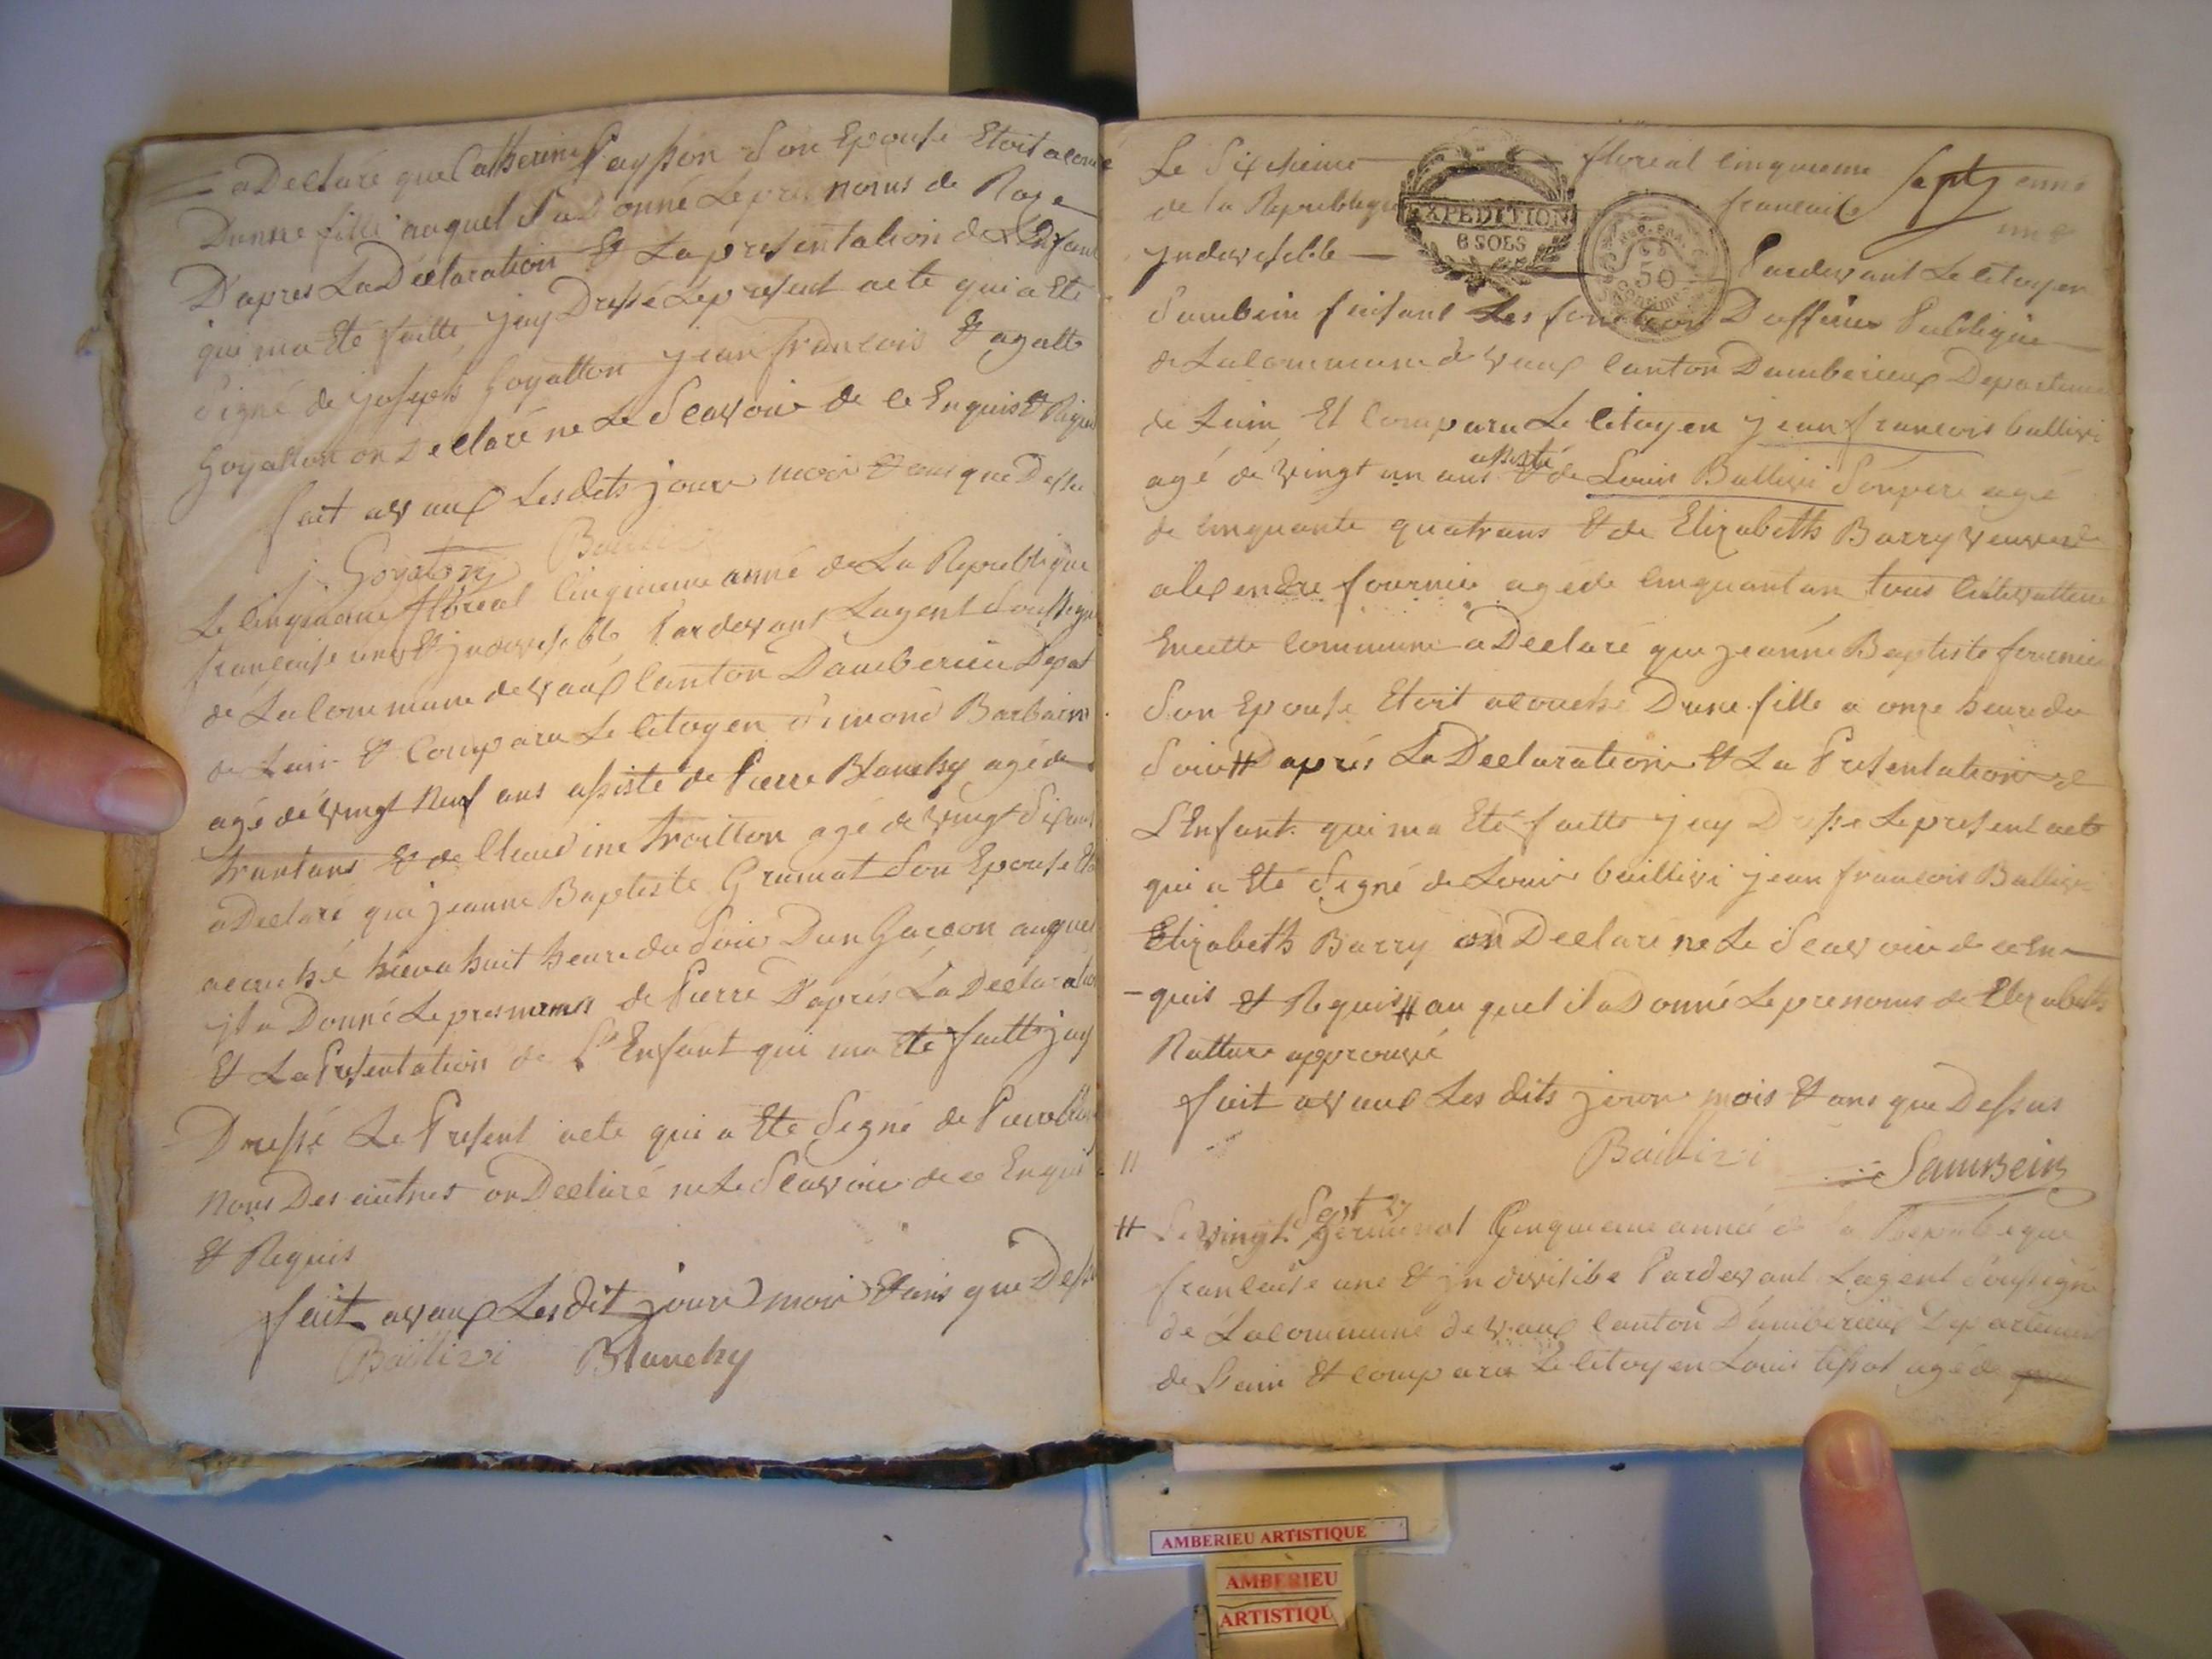 a Declaré que Catherine Paysson Son Epouse Etoit acouché
Dunne fille auquel Il a Donné Le prenoms de Roze
D'apres La Declaration Et La presentation de L'Enfant
qui ma Eté faitte jay Dressé Le present acte qui a Eté
Signé de joseph Goyatton jean francois Et agatte
Goyatton on Declaré ne Le Scavoir de ce Enquis Et Requis
fait a vaux Les dits jour mois Et ans que Dessu
j. Goyaton Baillivi
Le Cinquieme floreal Cinquieme anné de La Republique
francaise une Et jndivisible Pardevant Lagent Soussigné
de La Commune de vaux Canton Dambericu Depat
de Lain Et Compara Le Citoyen Simond Barbarin
agé de vingt Neuf ans assisté de Pierre Blanchy agé de
trantans Et de Claudine troitton agé de vingt Six ans
a Declaré que jeanne Baptiste Gramat Son Epouse Eto
acouché hiera huit heure du Soir Dun Garcon auquel
jl a Donné Le prenoms de Pierre D'aprés La Declaration
Et La Presentation de L'Enfant qui ma Eté faitte jay
Dressé Le Present acte qui a Eté Signé de Pierre Blan
Nous Des autres on Declaré ne Le Scavoir de ce Enquis
Et Requis
fait a vaux Les dit jour mois Et ans que Dessu
Baillivi Blanchy
Le Sixiheime floreal Cinquieme Sapt enné
de la Republique francaise une
jndivisible Pardevant Le Citoyen
EXPEDITION
6 SOLS
50
Centimes
Saubein faisant Les fonction D officier Publique
de La Commune de vaux Canton Damberieux Departeme
de Lain Et Compara Le Citoyen jean francois ballivi
assisté
agé de vingt un ans Et de Louis Ballivi Son pere agé
de cinquante quatrans Et de Elizabeth Barry veuve de
alexendre fournier agé de Cinquantan tous Cultivatteur
Encette Commune a Declaré que jeanne Baptiste fournier
Son Epouse Etoit acouché Dune fille a onze heure du
Soir # D'aprés La Declaration Et La Presentation de
L'Enfant qui ma Eté faitte jay Dressé Le present acte
qui a Eté Signé de Louis baillivi jean francois Ballivi
Elizabeth Barry on Declaré ne Le Scavoir de ce En-
-quis Et Requis # au quel il a Donné Le prenoms de Elizabeth
Ratture approuvé
fait a vaux Les dits jour mois Et ans que Dessus
Baillivi Saunbein
Sept 27
# Le vingt Germinal Cinquieme anneé de la Republique
francaise une Et jndivisible Pardevant Lagent Soussigné
de La Commune de vaux Canton D'amberieux Departement
de Lain Et Compara Le Citoyen Louis tissot agé de
AMBERIEU ARTISTIQUE
AMBERIEU
ARTISTIQU